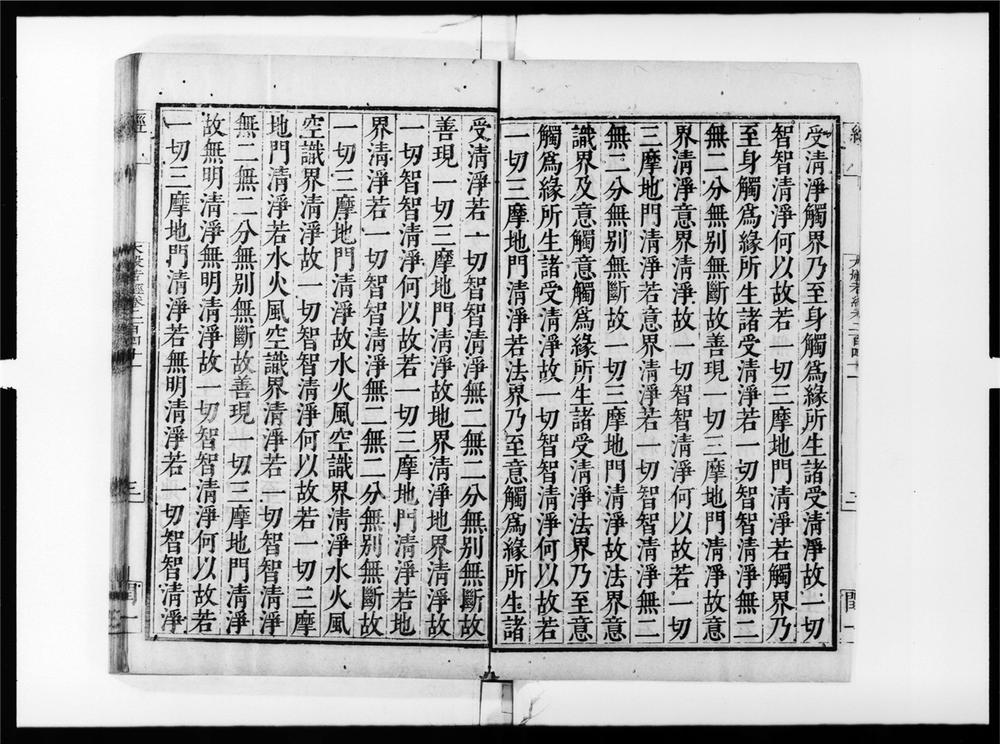 受清淨觸界乃至身觸爲緣所生諸受清淨故一切
智智清淨何以故若一切三摩地門清淨若觸界乃
至身觸爲緣所生諸受清淨若一切智智清淨無二
無二分無别無斷故善現一切三摩地門清淨故意
界清淨意界清淨故一切智智清淨何以故若一切
三摩地門清淨若意界清淨若一切智智清淨無二
無二分無别無斷故一切三摩地門清淨故法界意
識界及意觸意觸爲緣所生諸受清淨法界乃至意
觸爲緣所生諸受清淨故一切智智清淨何以故若
一切三摩地門清淨若法界乃至意觸爲緣所生諸
受清淨若一切智智清淨無二無二分無别無斷故
善現一切三摩地門清淨故地界清淨地界清淨故
一切智智清淨何以故若一切三摩地門清淨若地
界清淨若一切智智清淨無二無二分無别無斷故
一切三摩地門清淨故水火風空識界清淨水火風
空識界清淨故一切智智清淨何以故若一切三摩
地門清淨若水火風空識界清淨若一切智智清淨
無二無二分無别無斷故善現一切三摩地門清淨
故無明清淨無明清淨故一切智智清淨何以故若
一切三摩地門清淨若無明清淨若一切智智清淨